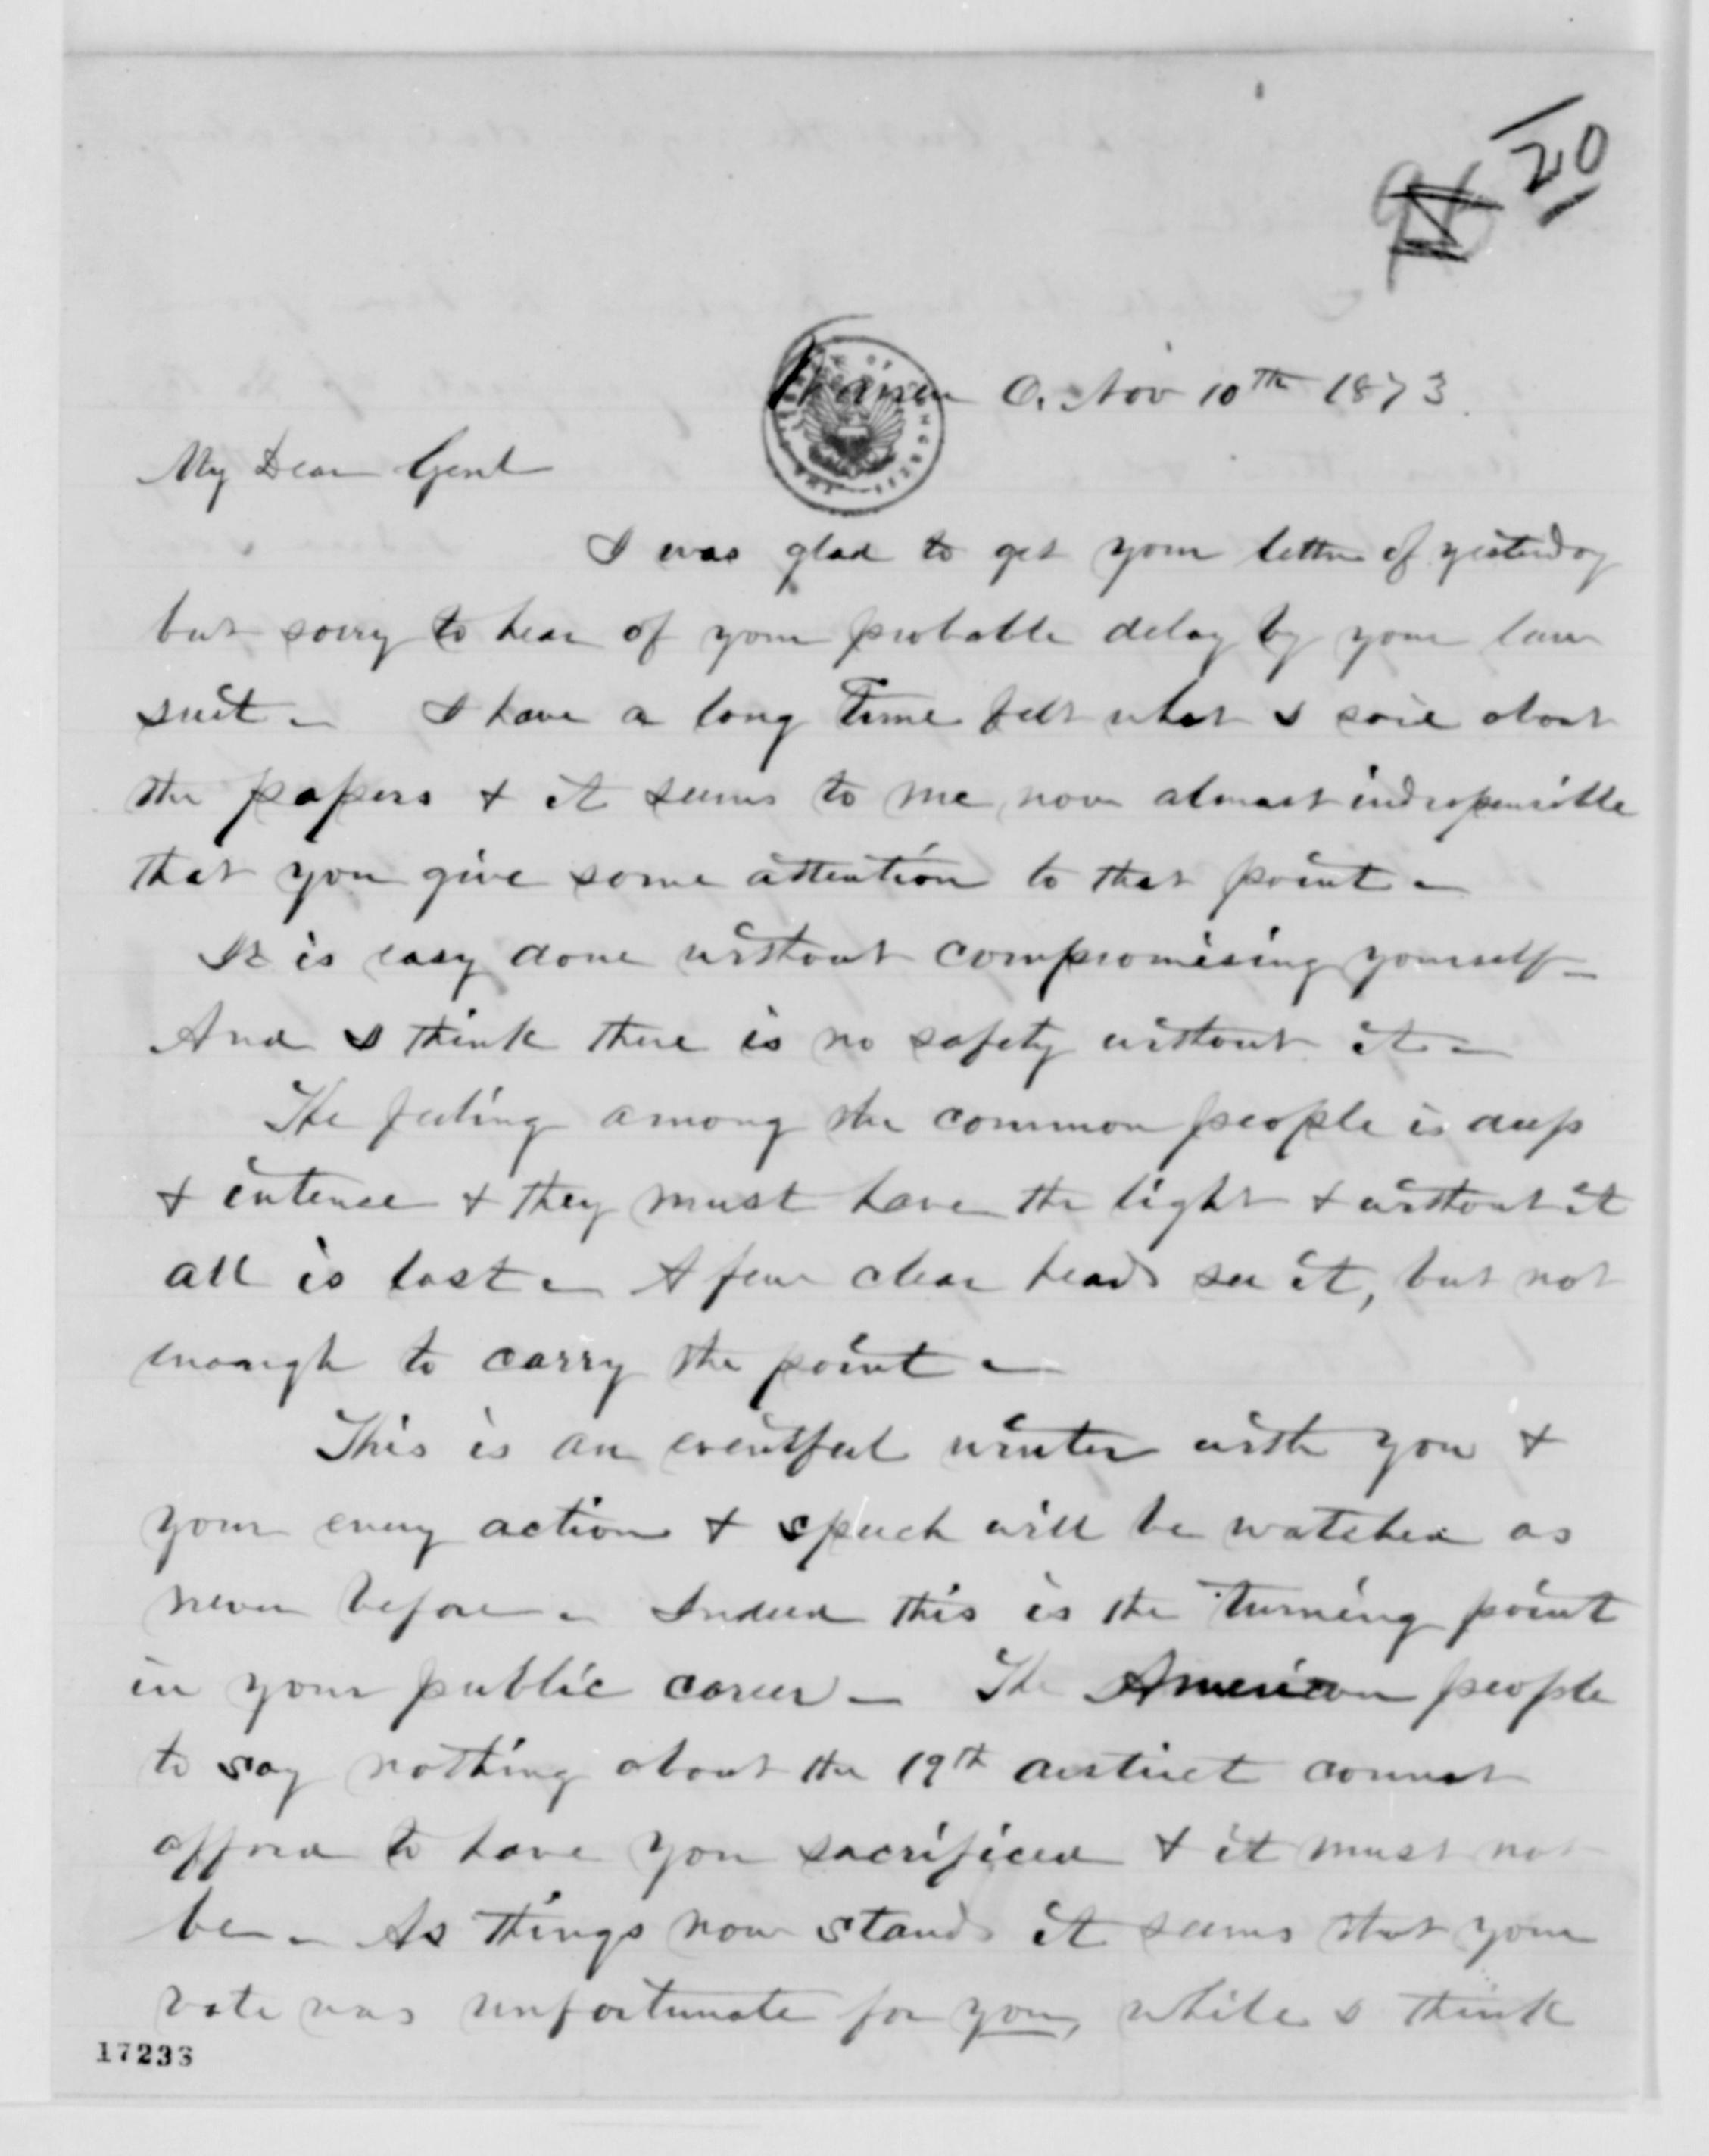 20
Warren O. Nov 10th 1873.
My Dear Genl
I was glad to get your letter of yesterday
but sorry to hear of your probable delay by your law
suit – I have a long time felt what I said about
the papers & it seems to me now almost indispensible
that you give some attention to that point –
It is easy done without compromising yourself –
And I think there is no safety without it –
The feeling among the common people is deep
& intense & they must have the light & without it
all is lost – A few clear heads see it, but not
enough to carry the point –
This is an eventful winter with you &
your every action & speech will be watched as
never before – Indeed this is the turning point
in your public career – The American people
to say nothing about the 19th district cannot
afford to have you sacrificed & it must not
be – As things now stand it seems that your
vote was unfortunate for you, while I think
17233